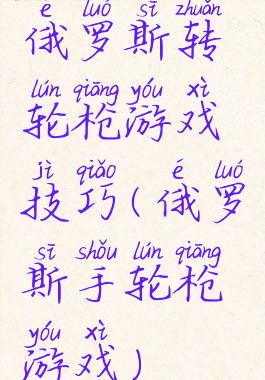 é luó sī zhuàn
俄罗斯转
lún qiāng yóu xì
轮枪游戏
jì qiǎo é luó
技巧(俄罗
sī shǒu lún qiāng
斯手轮枪
yóu xì
游戏)